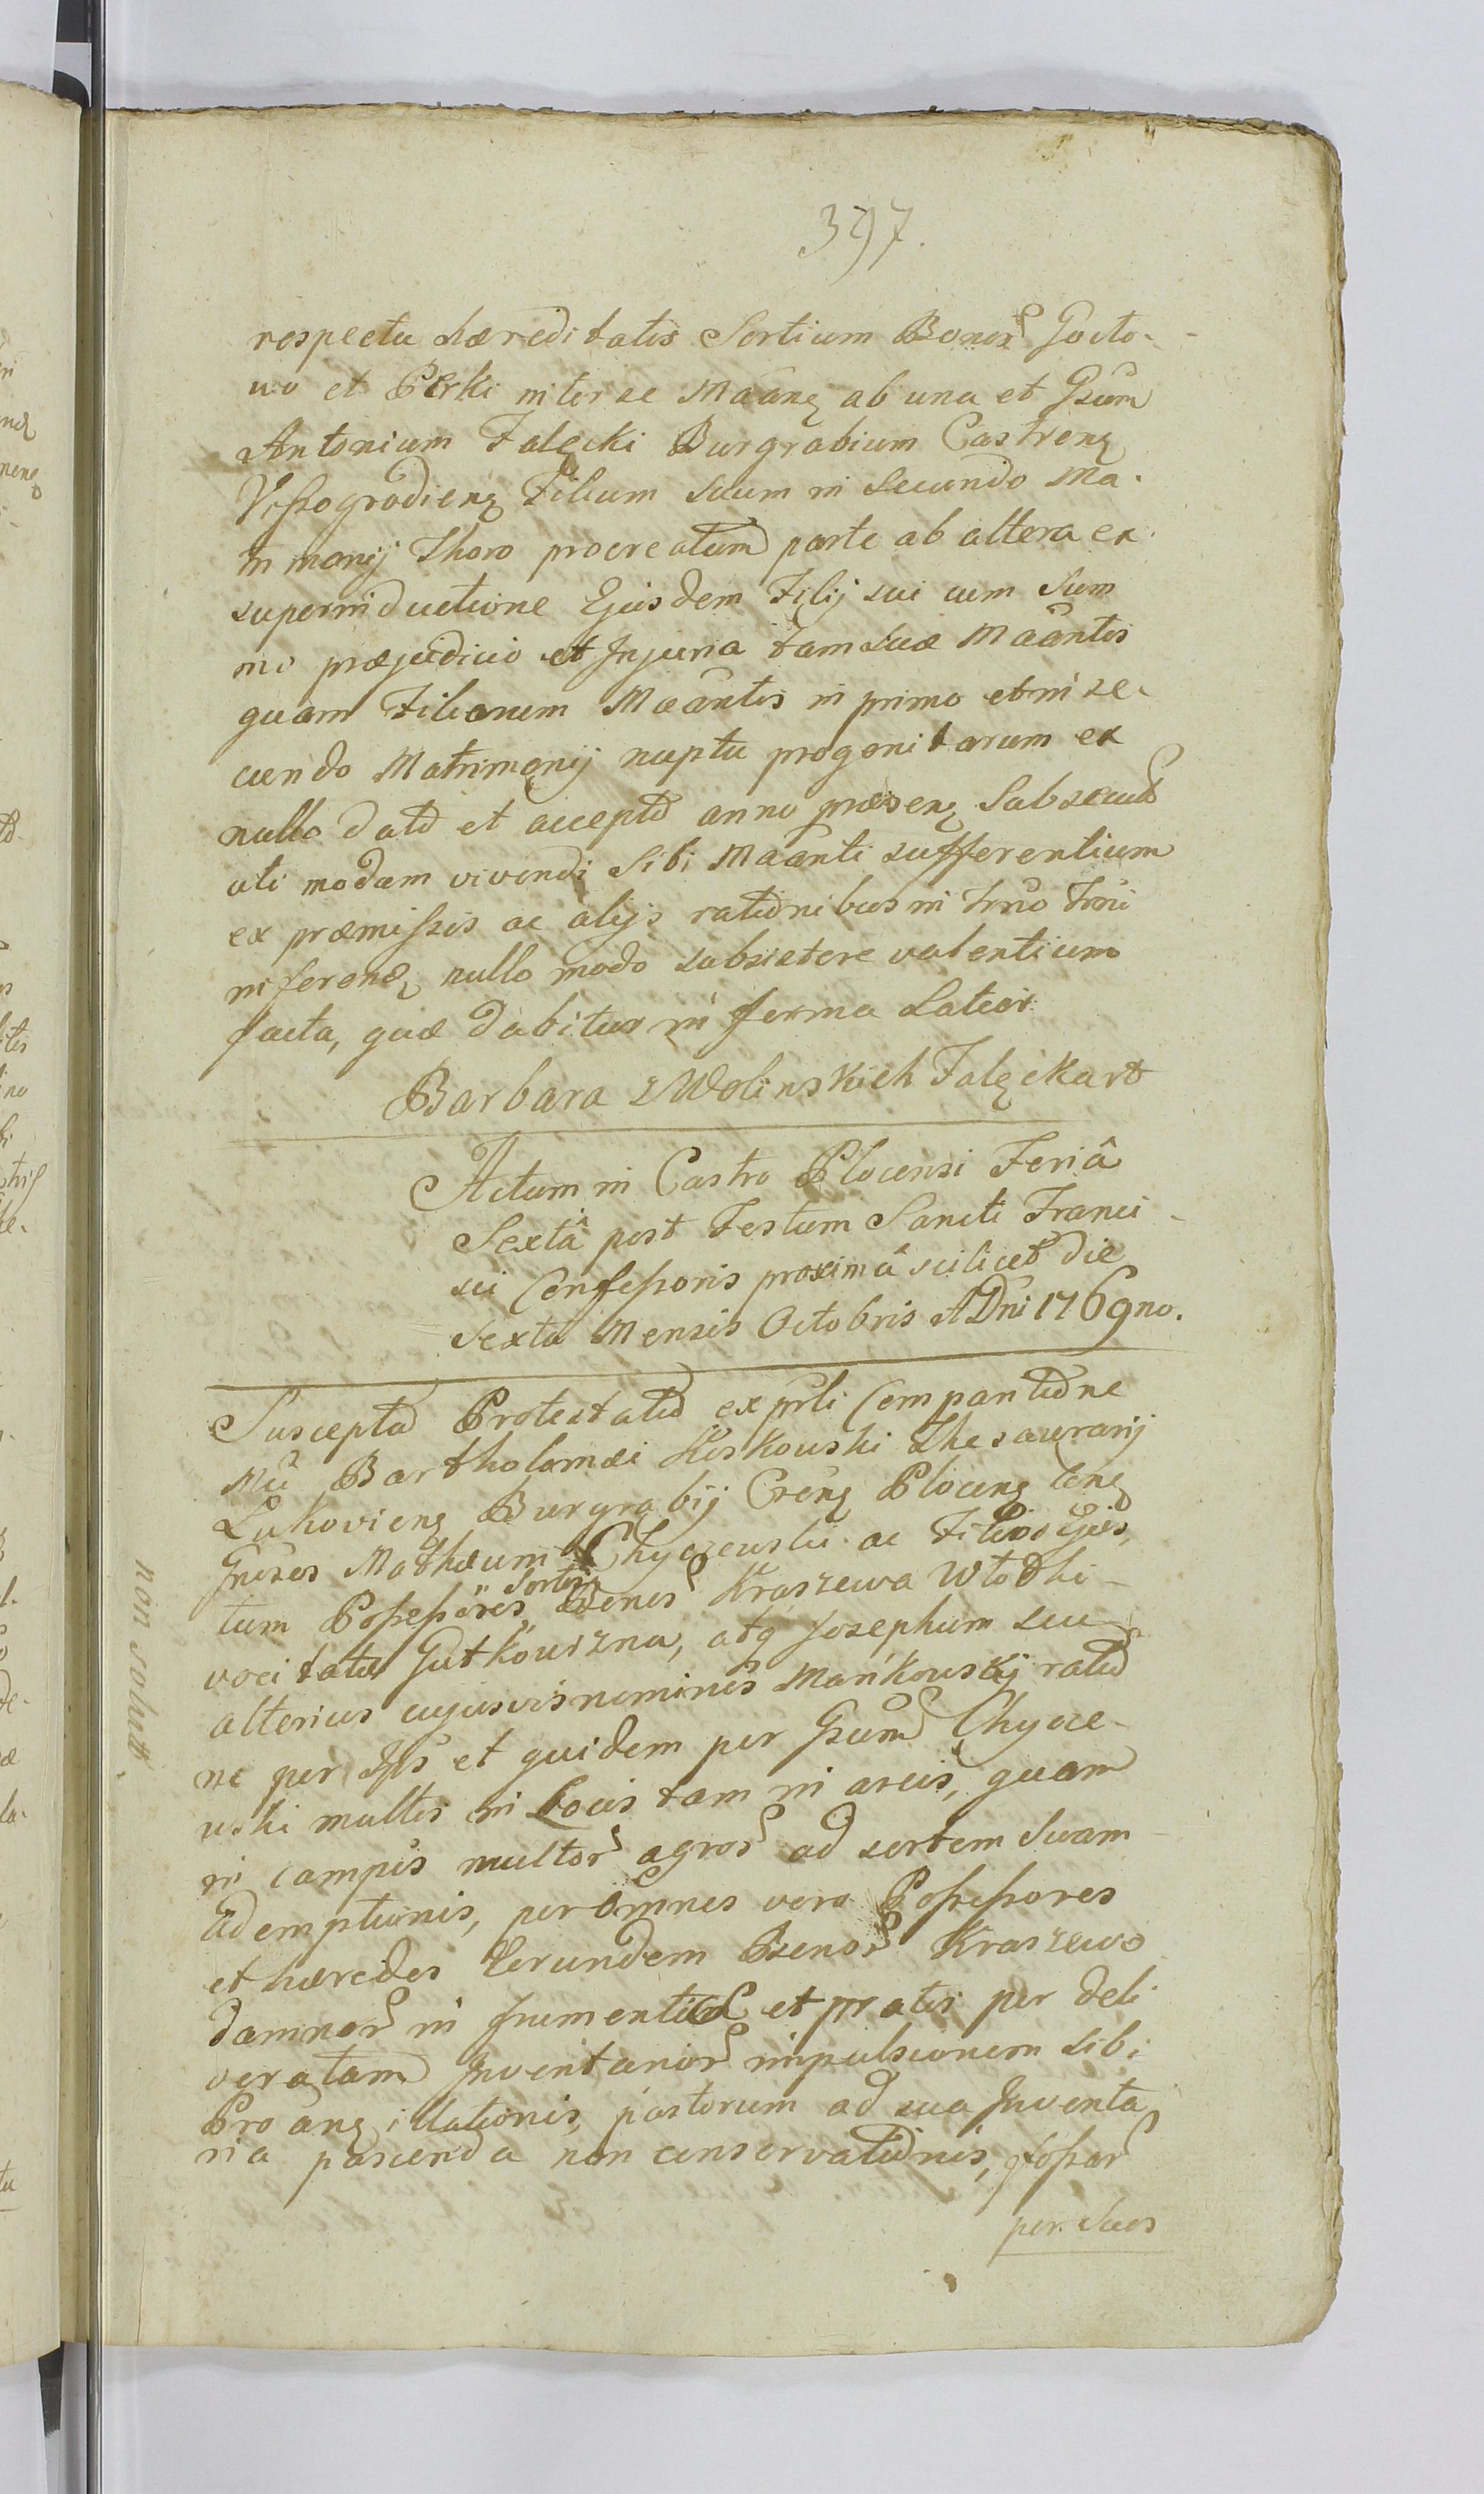 397.
respectu hæreditatis Sortium Bonor Gocło-
wo et Perki inter se Maanq ab una et Gsum
Antonium Falęcki Burgrabium Castrenq
Vissogrodienq Filium suum in Secundo Ma-
trimonij Thoro procreatum parte ab altera ex
superinductione Ejusdem Filij sui cum sum
mo præjudicio et Injuria tam suæ Maantis
quam Filiarum Maantis in primo et in se-
cundo Matrimonij nuptu progenitarum ex
nullo dato et accepto anno præsenq Subsecuto
uti modum vivendi Sibi Maanti sufferentium
ex præmissis ac alijs rationibus in Trno Trni
inferend nullo modo subsistere valentium
facta, quæ dabitur in forma Latiori
Barbara z Wolinskich Falęckart
Actum in Castro Plocensi Feriâ
Sextâ post Festum Sancti Franci-
sci Confessoris proximâ scilicet die
Sexta Mensis Octobris A Dni 1769no.
Suscepta Protestatio ex prli Comparitione
Mci Bartholomæi Kiskowski Thesaurarij
Lukovienq Burgrabij Crenq Plocenq Conq
Gnrses Mathæum Chyczewski ac Filios Ejus,
tum Possessores Sortis Bonor Kraszewa Włodki-
vocitatæ Gutkowizna, atq Josephum seu
alterius cujusvis nominis Mańkowskij ratio
ne per Ipss et quidem per Gsum Chycze-
wski multis in Locis tam in areis, quam
in campis multor agror ad sortem Suam
ademptionis, per omnes vero Possessores
et hæredes Eorundem Bonor Kraszewo
damnor in frumentis et pratis per deli
veratam Inventarior impulsionem Sibi
Proanq illationis, pastorum ad sua Inventa
ria pascenda non conservationis, fossar
per Suos
non solvit